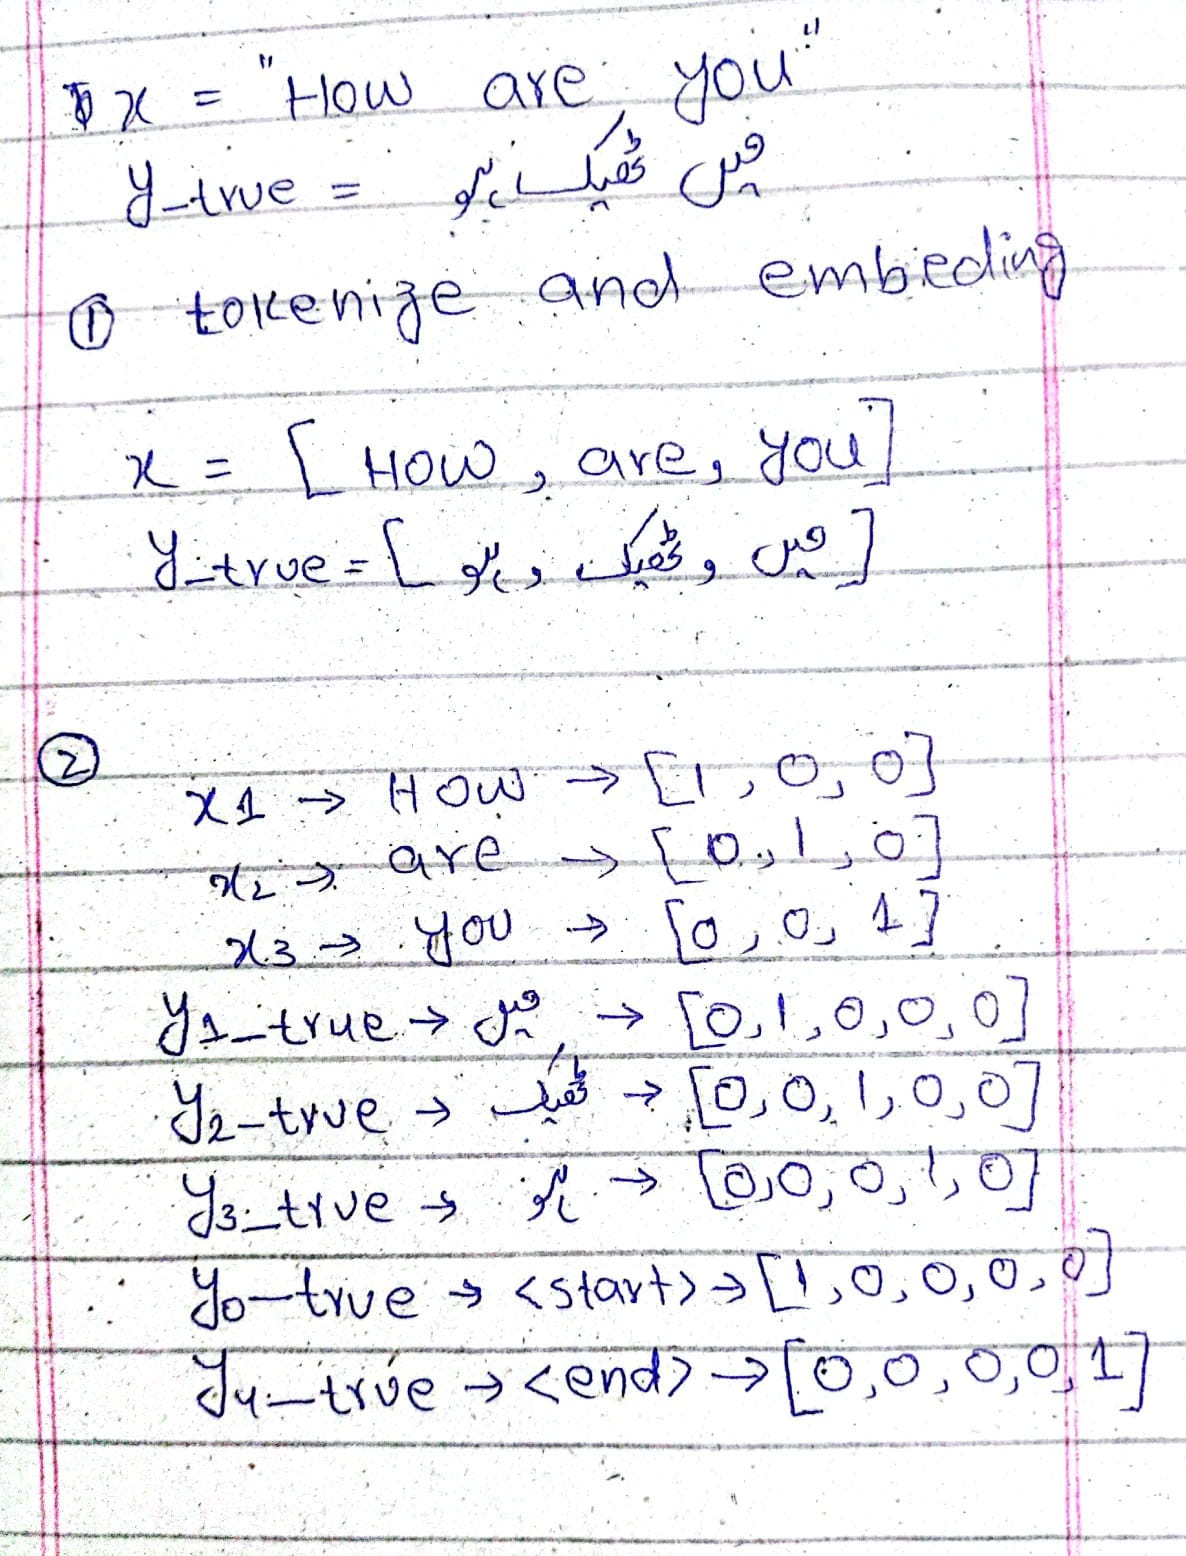 x = "How are you"
y_true = میں ٹھیک ہو
① tokenize and embeding
x = [ How , are , you ]
y_true = [ میں , ٹھیک , ہو ]
②
x1 → How → [1, 0, 0]
x2 → are → [0, 1, 0]
x3 → you → [0, 0, 1]
y1_true → میں → [0,1,0,0,0]
y2_true → ٹھیک → [0,0,1,0,0]
y3_true → ہو → [0,0,0,1,0]
y0_true → <start> → [1,0,0,0,0]
y4_true → <end> → [0,0,0,0,1]